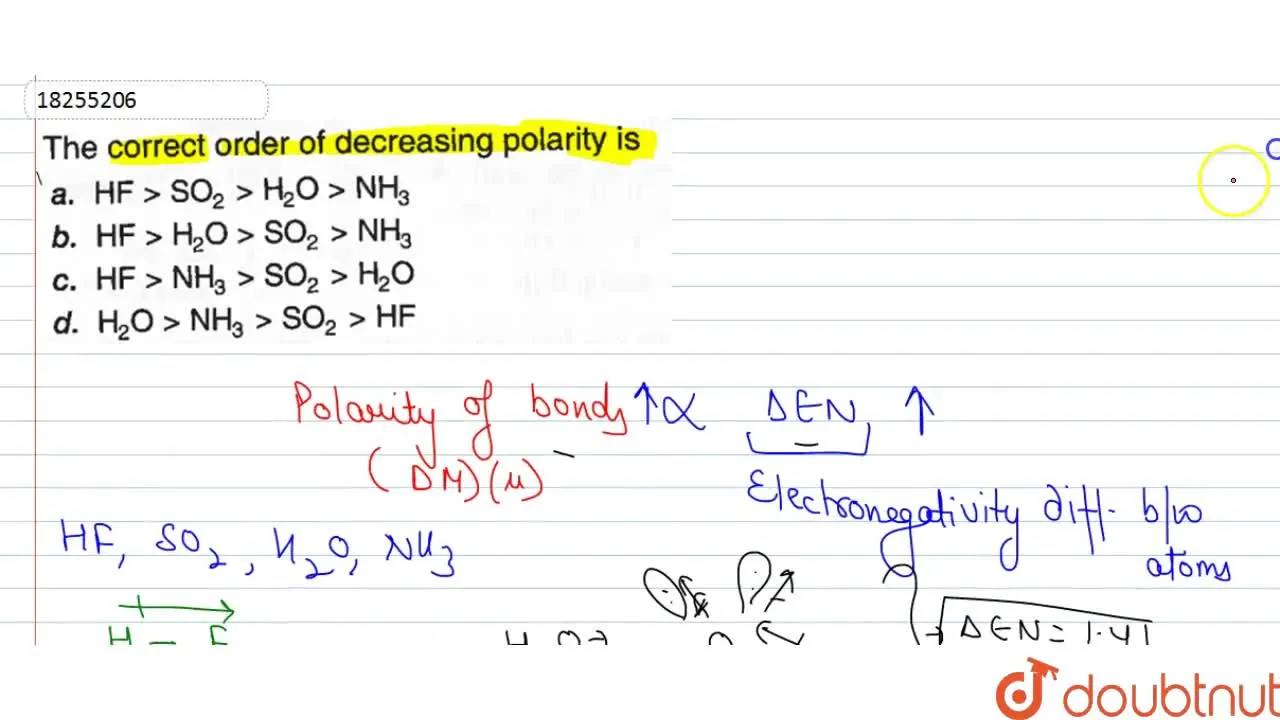 18255206
The correct order of decreasing polarity is
a. HF > SO₂ > H₂O > NH₃
b. HF > H₂O > SO₂ > NH₃
c. HF > NH₃ > SO₂ > H₂O
d. H₂O > NH₃ > SO₂ > HF
Polarity of bonds ↑ ∝ ΔEN ↑
(DM)(μ)
Electronegativity diff. b/w
atoms
HF, SO₂, H₂O, NH₃
ΔEN = 1.41
H – F
doubtnut